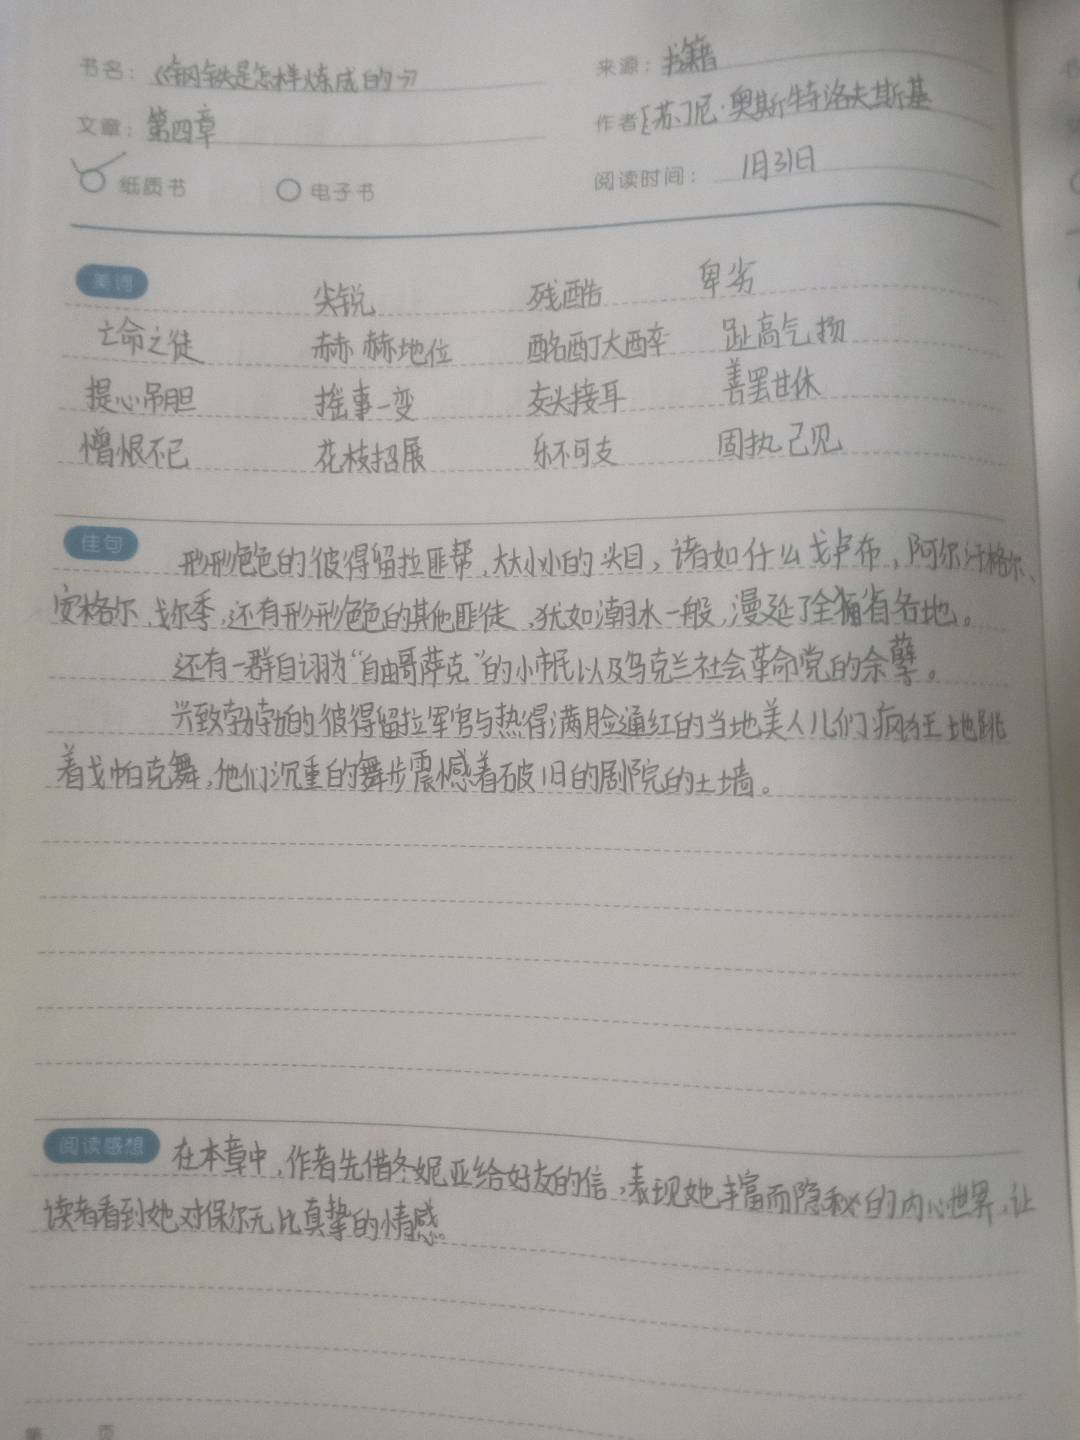 书名：《钢铁是怎样炼成的》 来源：书籍
文章：第四章 作者[苏]尼·奥斯特洛夫斯基
纸质书 电子书 阅读时间：1月31日
美词 尖锐 残酷 卑劣
亡命之徒 赫赫地位 酩酊大醉 趾高气扬
提心吊胆 摇事一变 交头接耳 善罢甘休
憎恨不已 花枝招展 乐不可支 固执己见
佳句 形形色色的彼得留拉匪帮，大大小小的头目，诸如什么戈卢布，阿尔汗格尔、
安格尔，戈尔季，还有形形色色的其他匪徒，犹如潮水一般，漫延了全省各地。
还有一群自诩为“自由哥萨克”的小市民以及乌克兰社会革命党的余孽。
兴致勃勃的彼得留拉军官与热得满脸通红的当地美人儿们疯狂地跳
着戈帕克舞，他们沉重的舞步震憾着破旧的剧院的土墙。
阅读感想 在本章中，作者先借冬妮亚给好友的信，表现她丰富而隐秘的内心世界，让
读者看到她对保尔无比真挚的情感。
第 页